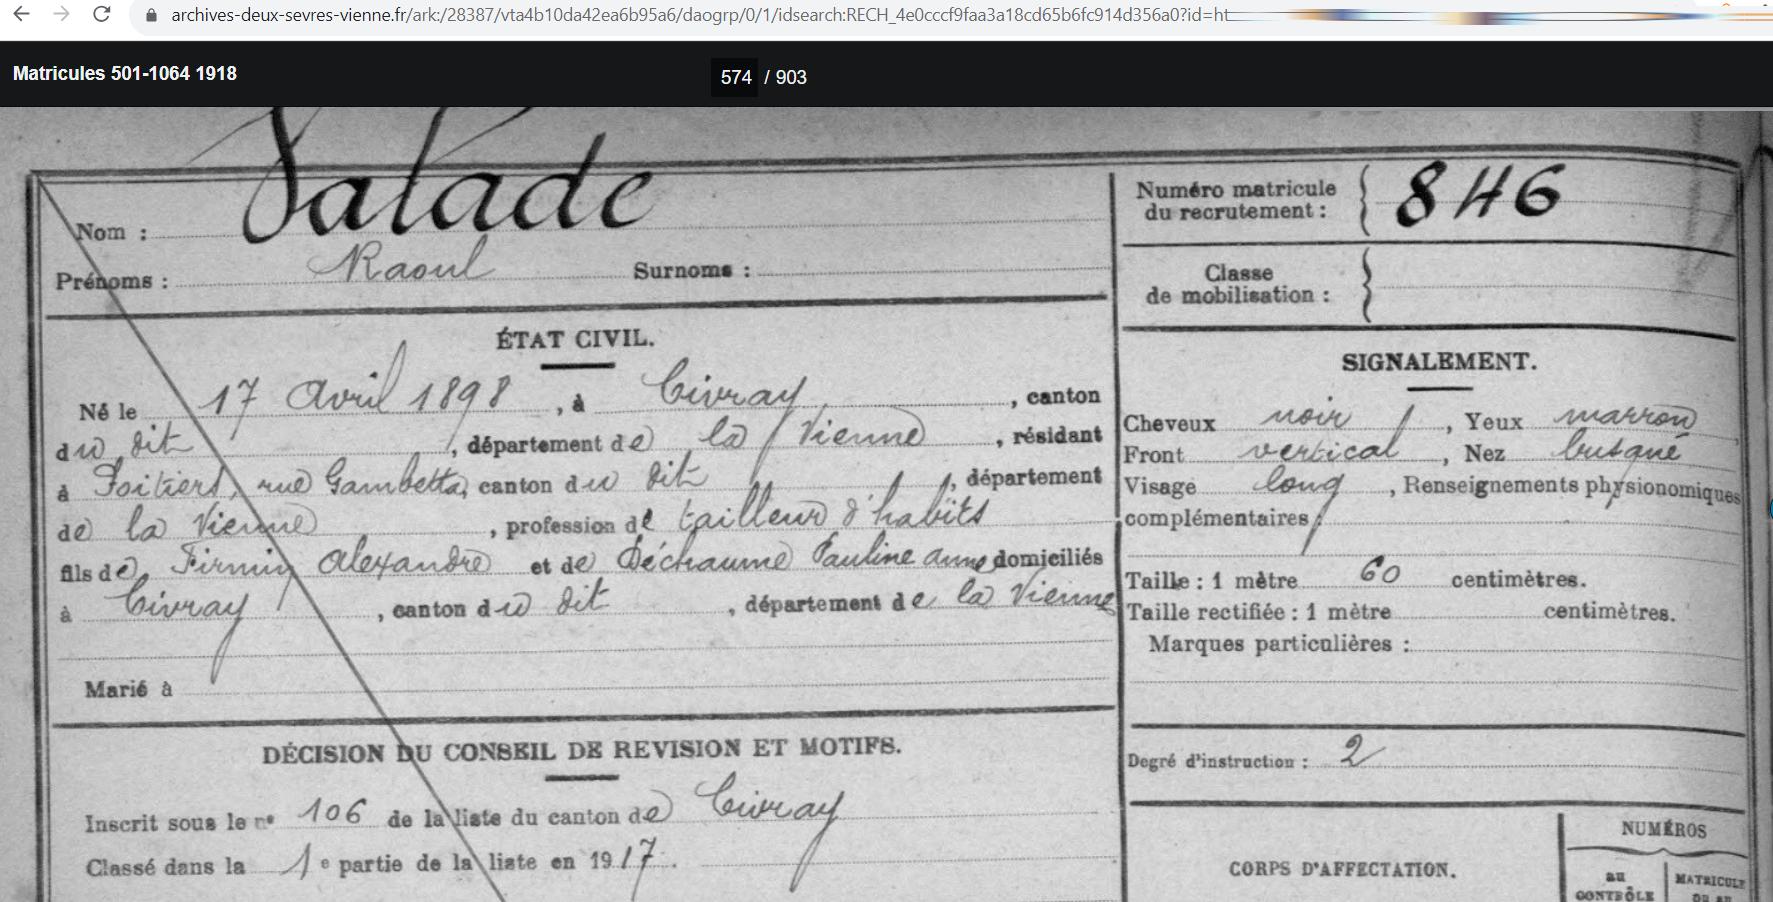 archives-deux-sevres-vienne.fr/ark:/28387/vta4b10da42ea6b95a6/daogrp/0/1/idsearch:RECH_4e0cccf9faa3a18cd65b6fc914d356a0?id=ht
Matricules 501-1064 1918
574 / 903
Nom : Salade
Prénoms : Raoul Surnoms :
ÉTAT CIVIL.
Né le 17 Avril 1898, à Civray, canton
du dit, département de la Vienne, résidant
à Poitiers, rue Gambetta, canton du dit, département
de la Vienne, profession de tailleur d'habits
fils de Firmin Alexandre et de Déchaume Pauline Anne domiciliés
à Civray, canton du dit, département de la Vienne
Marié à
DÉCISION DU CONSEIL DE REVISION ET MOTIFS.
Inscrit sous le n° 106 de la liste du canton de Civray
Classé dans la 1e partie de la liste en 1917.
Numéro matricule
du recrutement : 846
Classe
de mobilisation :
SIGNALEMENT.
Cheveux noir, Yeux marron
Front vertical, Nez busqué
Visage long, Renseignements physionomiques
complémentaires :
Taille : 1 mètre 60 centimètres.
Taille rectifiée : 1 mètre centimètres.
Marques particulières :
Degré d'instruction : 2
CORPS D'AFFECTATION.
NUMÉROS
au
CONTRÔLE
MATRICULE